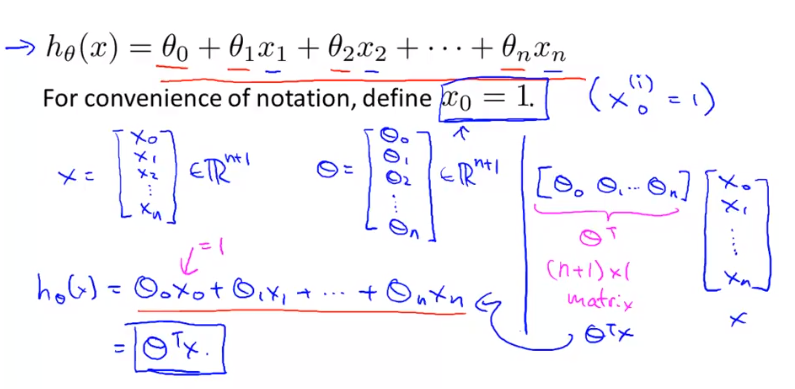 → hθ(x) = θ₀ + θ₁x₁ + θ₂x₂ + ··· + θₙxₙ
For convenience of notation, define x₀ = 1. (x₀⁽ⁱ⁾ = 1)
x = [x₀ x₁ x₂ ⋮ xₙ] ∈ ℝⁿ⁺¹ θ = [θ₀ θ₁ θ₂ ⋮ θₙ] ∈ ℝⁿ⁺¹
[θ₀ θ₁ ··· θₙ] [x₀ x₁ ⋮ xₙ]
θᵀ
(n+1) × 1
matrix
x
θᵀx
= 1
hθ(x) = θ₀x₀ + θ₁x₁ + ··· + θₙxₙ
= θᵀx.